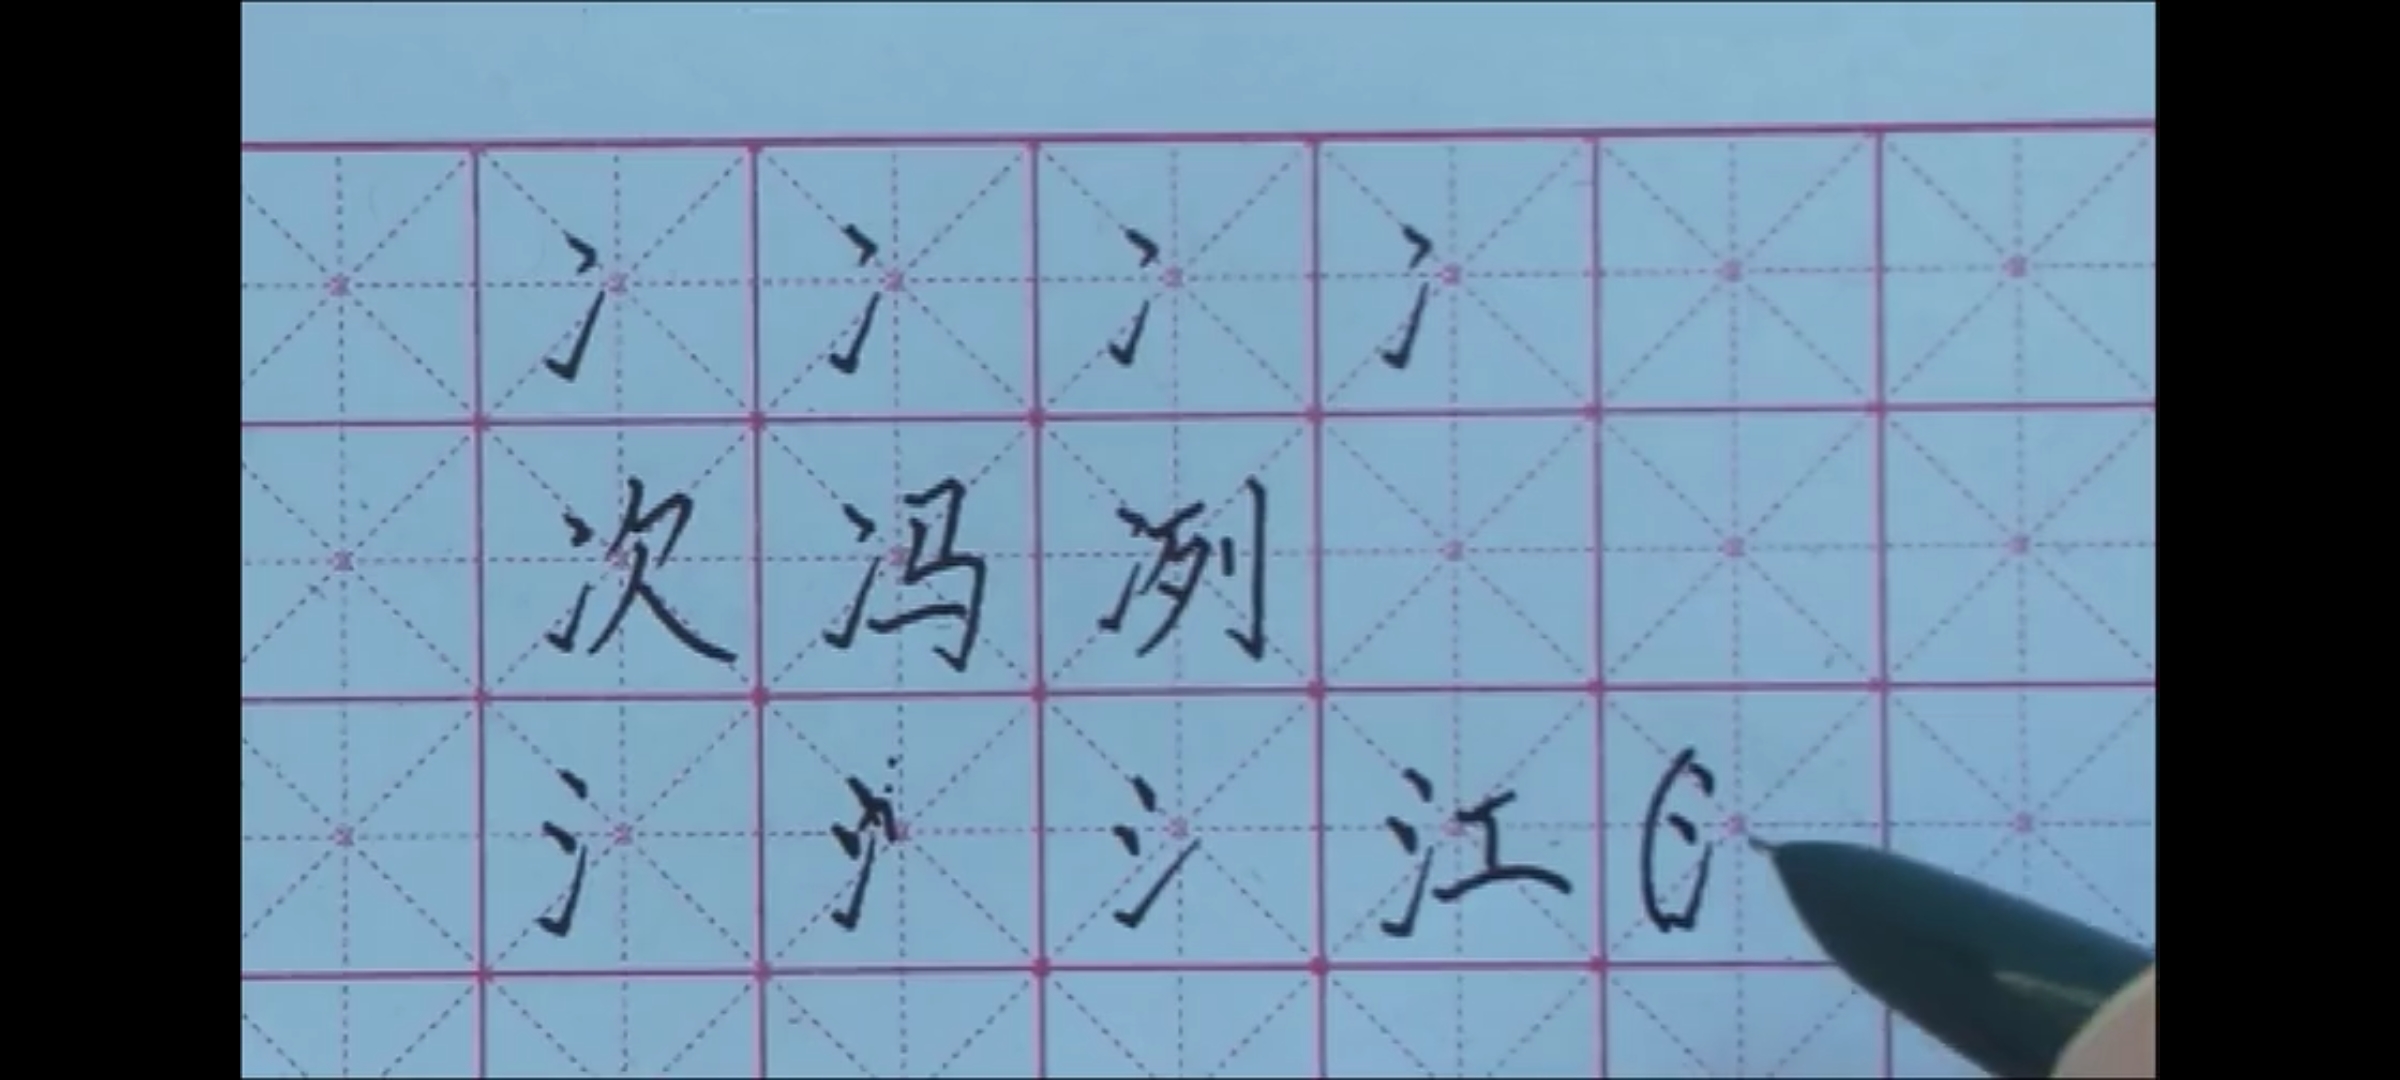 冫冫冫冫
次冯冽
氵氵氵江氵